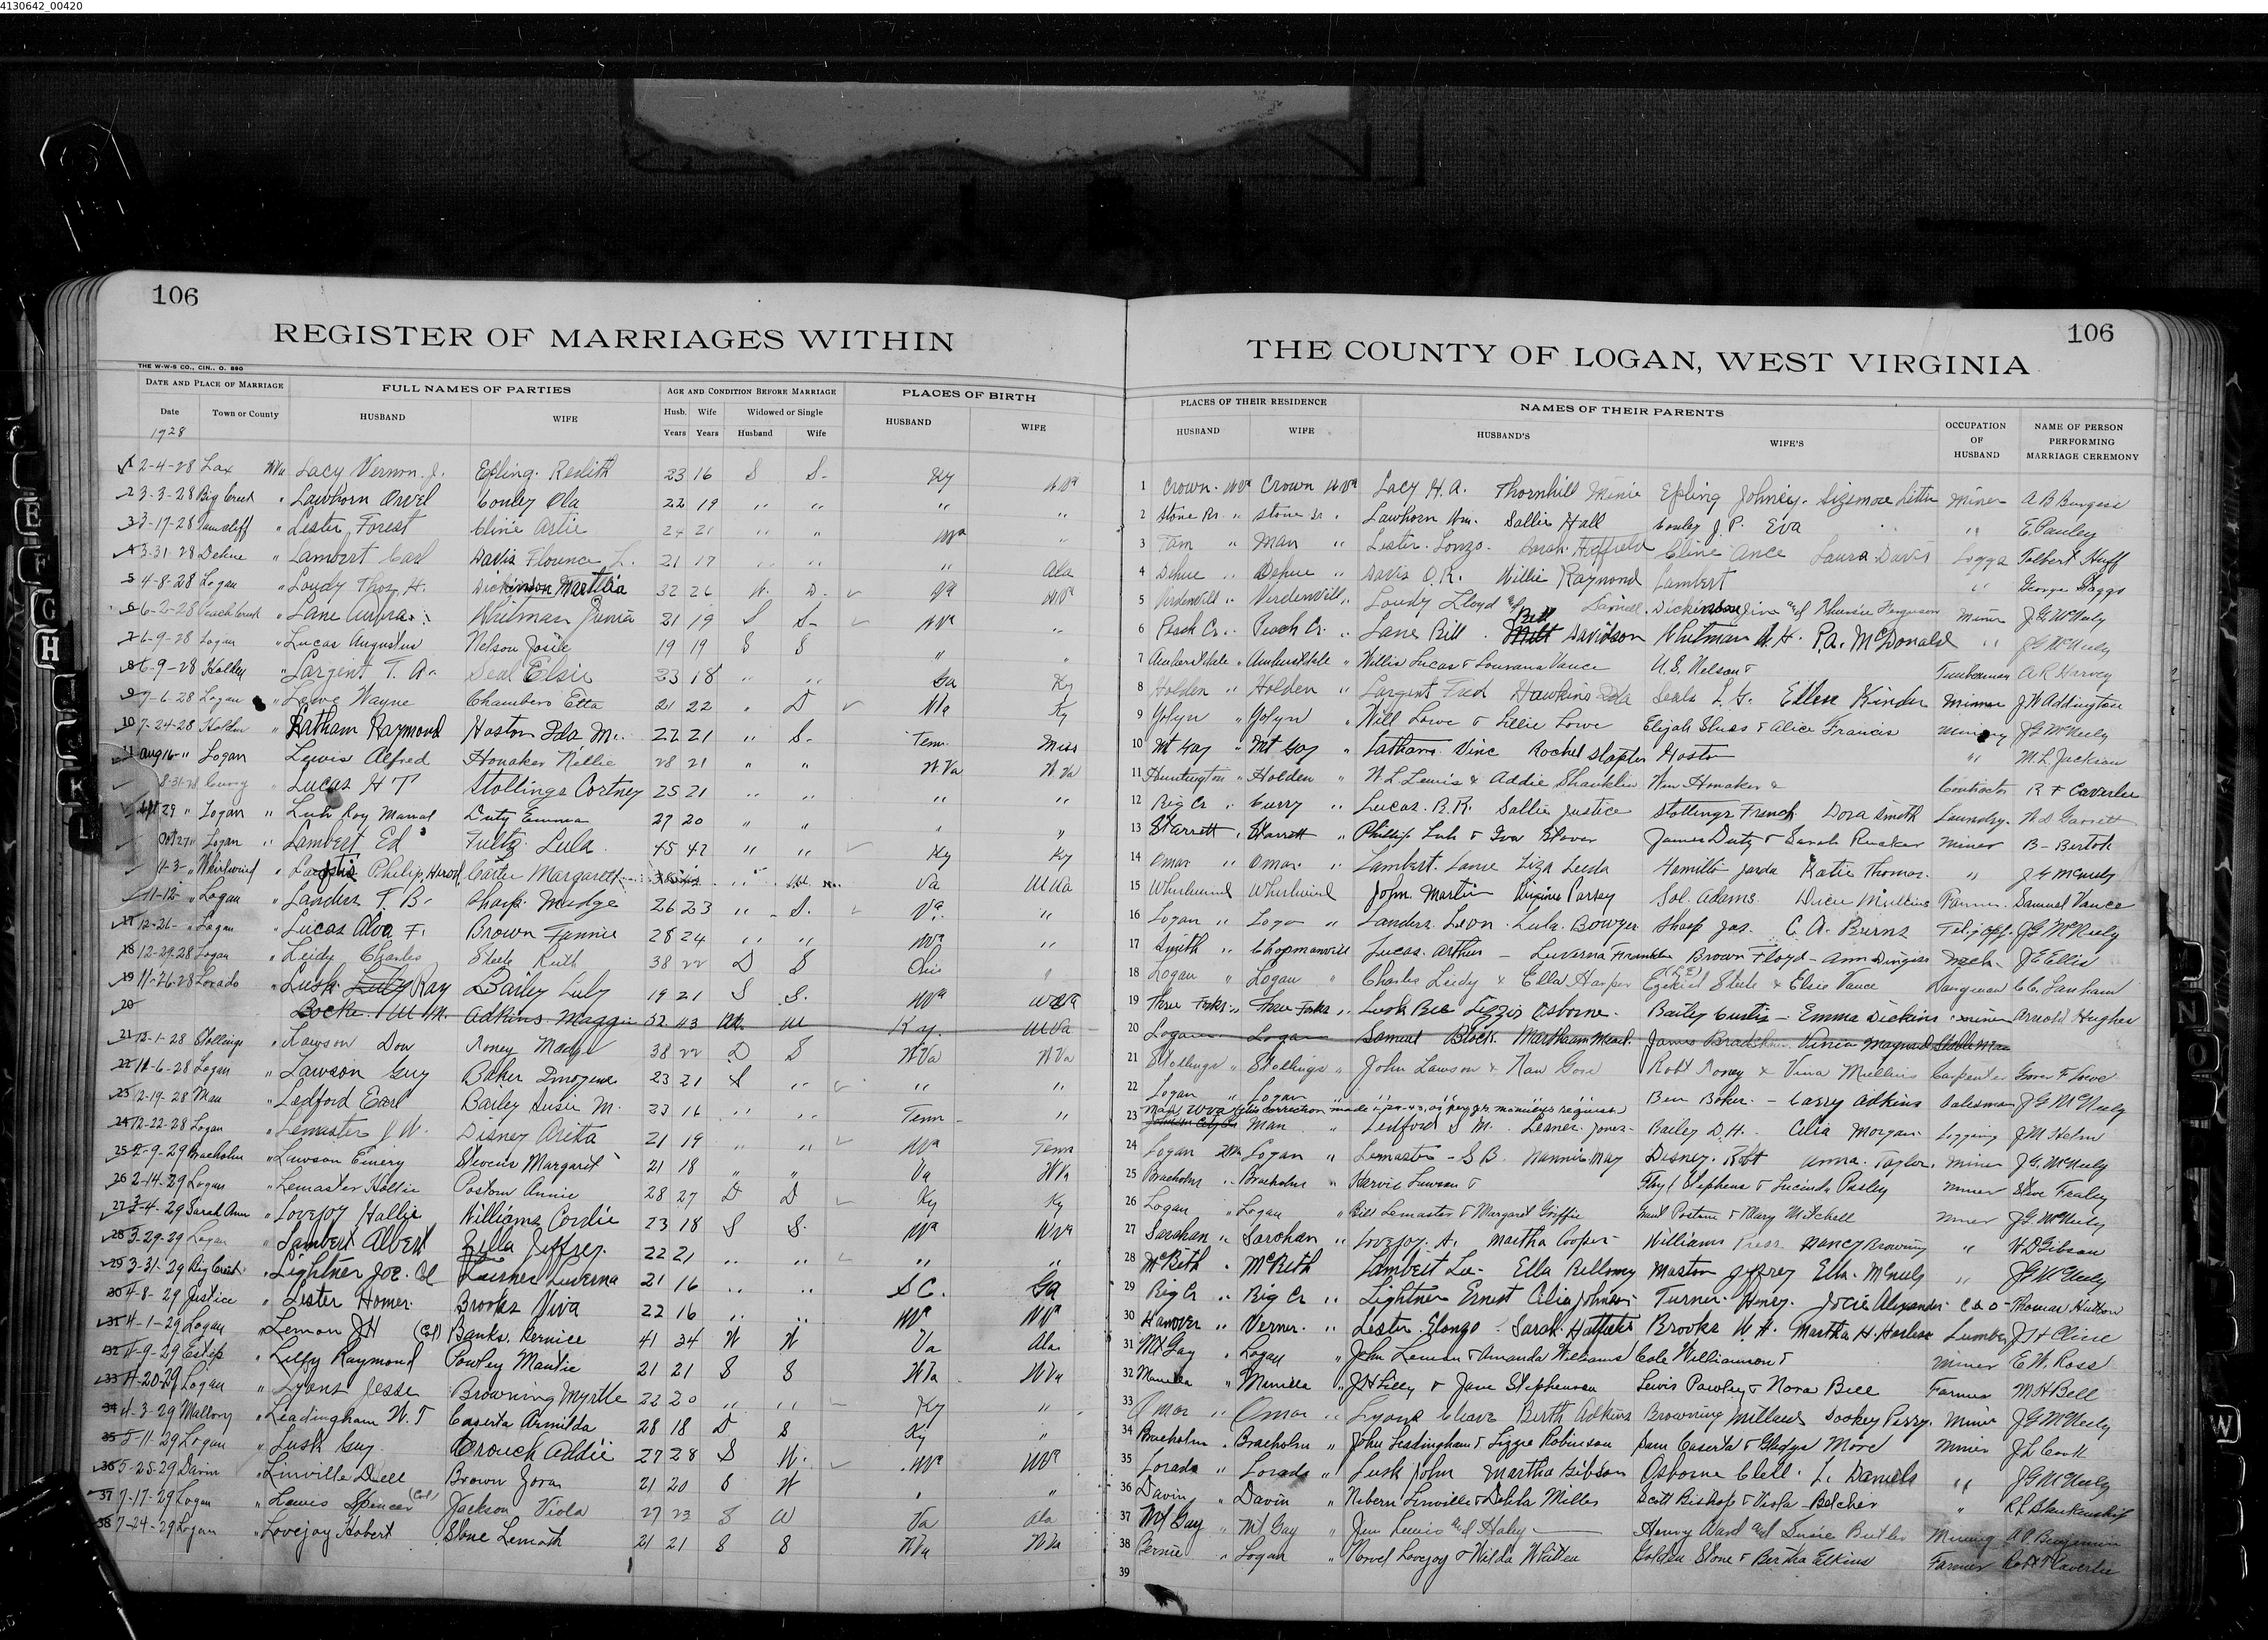 4130642_00420
106
REGISTER OF MARRIAGES WITHIN
THE W-W-S CO., CIN., O. 890
DATE AND PLACE OF MARRIAGE FULL NAMES OF PARTIES AGE AND CONDITION BEFORE MARRIAGE PLACES OF BIRTH
Date Town or County HUSBAND WIFE Husb. Wife Widowed or Single HUSBAND WIFE
1928 Years Years Husband Wife
1 2-4-28 Lax WVa Lacy Vernon J. Epling 23 16 S S Ky W.Va
2 3-3-28 Big Creek " Lawhorn Orvel Conley Ola 22 19 " " " "
3 3-17-28 " Lester Forest Cline Artie 24 21 " " WVa "
4 3-31-28 Dehue " Lambert Carl Davis Florence L. 21 17 " " " Ala
5 4-8-28 Logan " Loudy Thos. H. Dickinson Martha 32 26 W. D. Va W.Va
6 6-2-28 Peach Creek " Lane Whitman Junia 21 19 S S WVa "
7 6-9-28 Logan " Lucas Augustus Nelson Josie 19 19 S S " "
8 6-9-28 Holden " Largent T. A. Seal Elsie 23 18 " " Ga Ky
9 7-6-28 Logan " Lowe Wayne Chambers Etta 21 22 " D Va Ky
10 7-24-28 Holden " Latham Raymond Hoston Ida M. 22 21 " S. Tenn. Miss
11 Aug 16 " Logan " Lewis Alfred Honaker Nellie 28 21 " " W.Va W.Va
8-31-28 Curry " Lucas H T Stollings Cortney 25 21 " " " "
Sept 29 " Logan " Luh Roy Duty Emma 27 20 " " " "
Oct 27 " Logan " Lambert Ed Fultz Lula 45 42 " " Ky Ky
11-3 " Whirlwind " Philip Carter Margarett " Va W.Va
11-12 " Logan " Landers T. B. Sharp Madge 26 23 " S. Va. "
17 12-26- " Logan " Lucas Alva F. Brown Fannie 28 24 " " WVa "
18 12-29-28 Logan " Leidy Charles Steele Ruth 38 22 D S Ohio "
19 11-26-28 Lorado " Lusk Ray Bailey Luly 19 21 S S. WVa WVa
20 Locke Wm. Adkins Maggie 52 43 W Ky. W.Va
21 12-1-28 Stollings " Lawson Dow Roney Madge 38 22 D S W Va W Va
22 11-6-28 Logan " Lawson Guy Baker Imogene 23 21 S " " "
23 2-19-28 Man " Ledford Earl Bailey Susie M. 23 16 " " Tenn "
24 12-22-28 Logan " Lemaster J W. Disney Orita 21 19 " " WVa Tenn
25 2-9-29 Braeholm " Lawson Emery Stevens Margaret 21 18 " " Va WVa
26 2-14-29 Logan " Lemaster Hollie Postom Annie 28 27 D D Ky Ky
27 3-4-29 Sarah Ann " Lovejoy Hallie Williams Cordie 23 18 S S. WVa WVa
28 3-29-29 Logan " Lambert Albert Zella Jeffrey 22 21 " " " "
29 3-31-29 Big Creek " Lightner Joe. Col Luverna 21 16 " " S C. Ga
30 4-8-29 Justice " Lester Homer Brooks Viva 22 16 " " WVa WVa
31 4-1-29 Logan " Lemon JH (Col) Banks Bernice 41 34 W W Va Ala
32 4-9-29 Estep " Lilly Raymond Powley Maudie 21 21 S S WVa WVa
33 4-20-29 Logan " Lyons Jesse Browning Myrtle 22 20 " " Ky "
34 4-3-29 Mallory " Leadingham W. T Caserta Armilda 28 18 D S Ky "
35 5-11-29 Logan " Lusk Guy Crouch Addie 27 28 S W. WVa WVa
36 5-25-29 Davin " Linville Dell Brown Zora 21 20 S W " "
37 7-17-29 Logan " Lewis Spencer (Col) Jackson Viola 27 23 S W Va Ala
38 7-24-29 Logan " Lovejoy Hobert Stone Lemoth 21 21 S S WVa WVa
106
THE COUNTY OF LOGAN, WEST VIRGINIA
PLACES OF THEIR RESIDENCE NAMES OF THEIR PARENTS OCCUPATION OF HUSBAND NAME OF PERSON PERFORMING MARRIAGE CEREMONY
HUSBAND WIFE HUSBAND'S WIFE'S
1 Crown WVa Crown WVa Lacy H.A. Thornhill Minie Epling Johney. Sizemore Miner A B Burgess
2 Stone Br. " Stone Br. " Lawhorn Wm. Sallie Hall Conley J. P. Eva " E Pauley
3 Tam " Man " Lester Lonzo. Sarah Hatfield Cline Ance Laura Davis Tolbert Huff
4 Dehue " Dehue " Davis O.R. Willie Raymond Lambert " George Staggs
5 Verdenvill " Verdenvill " Loudy Lloyd Dickinson Ferguson Miner J.G. McNeely
6 Peach Cr. " Peach Cr. " Lane Bill Davidson Whitman W.H. McDonald " J G McNeely
7 Amherstdale " Amherstdale " Willis Lucas & Louvana Vance U.S. Nelson & Timberman A R Harvey
8 Holden " Holden " Largent Fred Hawkins Seals L G. Ellen Kinder Miner J W Addington
9 Yolyn " Yolyn " Will Lowe & Lillie Lowe Elijah & Alice Francis J G McNeely
10 Mt Gay " Mt Gay " Latham Vinc Rochel Stapler Hoston " M. L. Jackson
11 Huntington " Holden " W L Lewis & Addie Shanklin Wm Honaker & Contractor R F Caverlee
12 Big Cr. " Curry " Lucas. B.R. Sallie Justice Stollings French Dora Smith Laundry W D Garrett
13 " " Phillip Luh & Iva Stover James Duty & Sarah Rucker Miner B- Bertok
14 Omar " Omar " Lambert. Lance Liza Hamilton Katie Thomas " J G McNeely
15 Whirlwind Whirlwind John Martin Virginia Parsey Sol. Adams Mullins Farmer Samuel Vance
16 Logan " Logan " Landers Leon. Lula Bowyer Sharp Jas. C. A. Burns J.G McNeely
17 Smith " Chapmanville Lucas. Arthur - Luverna Franklin Brown Floyd - Ann Mech- J E Ellis
18 Logan " Logan " Charles Leidy & Ella Harper Steele & Elsie Vance C C. Lanham
19 Three Forks " Three Forks " Lusk Lizzie Osborne Bailey Curtis - Emma Dickins Miner Arnold Hughes
20 Logan Logan James
21 Stollings " Stollings " John Lawson & Nan Gore Robt Roney & Vina Mullins Carpenter Grover F Lowe
22 Logan " Logan " " " " " Ben Baker - Carry Adkins Salesman J G McNeely
23 Man " Ledford S M. Leaner Jones Bailey D.H. Celia Morgan Logging J M Helm
24 Logan WVa Logan " Lemaster - S B. Nannie May Disney. Robt Anna. Taylor. Miner J.G. McNeely
25 Braeholm " Braeholm " Harvie Lawson & Floyd Stephens & Lucinda Pasley Miner Steve Fraley
26 Logan " Logan " Bill Lemaster & Margaret Griffie Grant Postum & Mary Mitchell Miner J.G. McNeely
27 Sarahan " Sarahan " Lovejoy. A. Martha Cooper Williams Nancy Browning " W D Gibson
28 McBeth " McBeth Lambert Lee Ella Bellomey Maston Jeffrey Ella McNeely " J G McNeely
29 Big Cr " Big Cr " Lightner Ernest Celia Johnson Turner Henry. Josie Alexander C & O Thomas Hutson
30 Hanover " Verner. " Lester Elonzo. Sarah Hatfield Brooks W. H. Martha H. Harless Lumber J H Cline
31 Mt Gay " Logan " John Lemon & Amanda Williams Cole Williamson & Miner E W. Ross
32 Manilla " Manilla " J H Lilly & Jane Stephenson Lewis Powley & Nora Bell Farmer M H Bell
33 Omar " Omar " Lyons Cleave Birth Adkins Browning Millard Dockey Perry. Miner J G McNeely
34 Braeholm " Braeholm " John Leadingham & Lizzie Robinson Sam Caserta & Gladys More Miner J L Cook
35 Lorado " Lorado " Lusk John Martha Gibson Osborne Clell. L. Daniels " J G McNeely
36 Davin " Davin " Nibern Linville & Delila Miller Scott Bishop & Viola Belcher " R L Blankenship
37 Mt Gay " Mt Gay " Jim Lewis and Haley Henry Ward and Susie Butler Mining A P Benjamin
38 Bernie " Logan " Norvel Lovejoy & Wilda Whitten Golden Stone & Bertha Elkins Farmer Robt F Caverlee
39